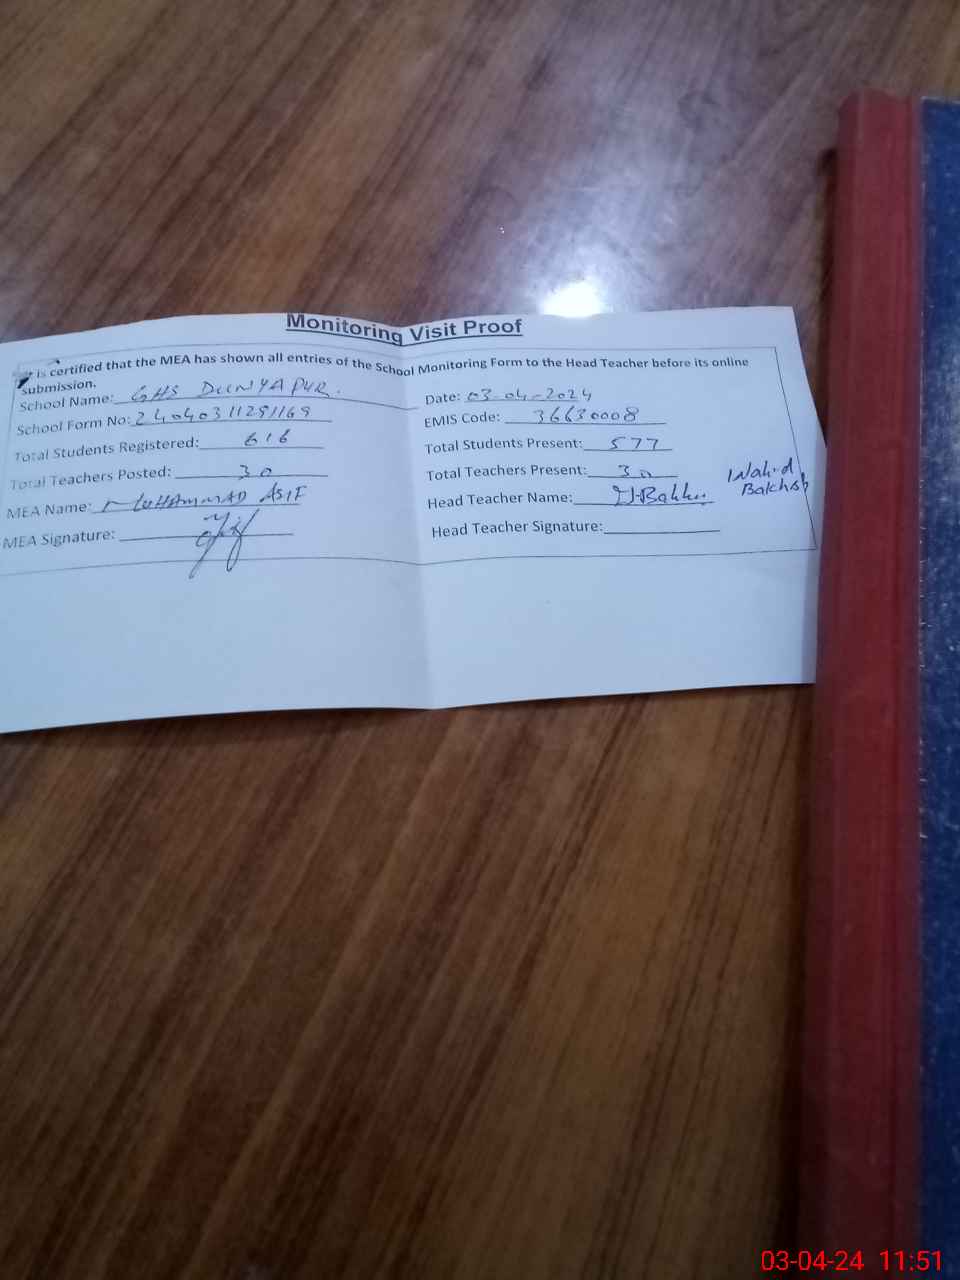 Monitoring Visit Proof
is certified that the MEA has shown all entries of the School Monitoring Form to the Head Teacher before its online
submission.
School Name: GHS DUNYAPUR.
Date: 03-04-2024
School Form No:
EMIS Code: 36630008
Total Students Registered: 616
Total Students Present: 577
Total Teachers Posted: 30
Total Teachers Present: 30
MEA Name: MUHAMMAD ASIF
Head Teacher Name:
Wahid
Bakhsh
MEA Signature:
Head Teacher Signature:
03-04-24 11:51